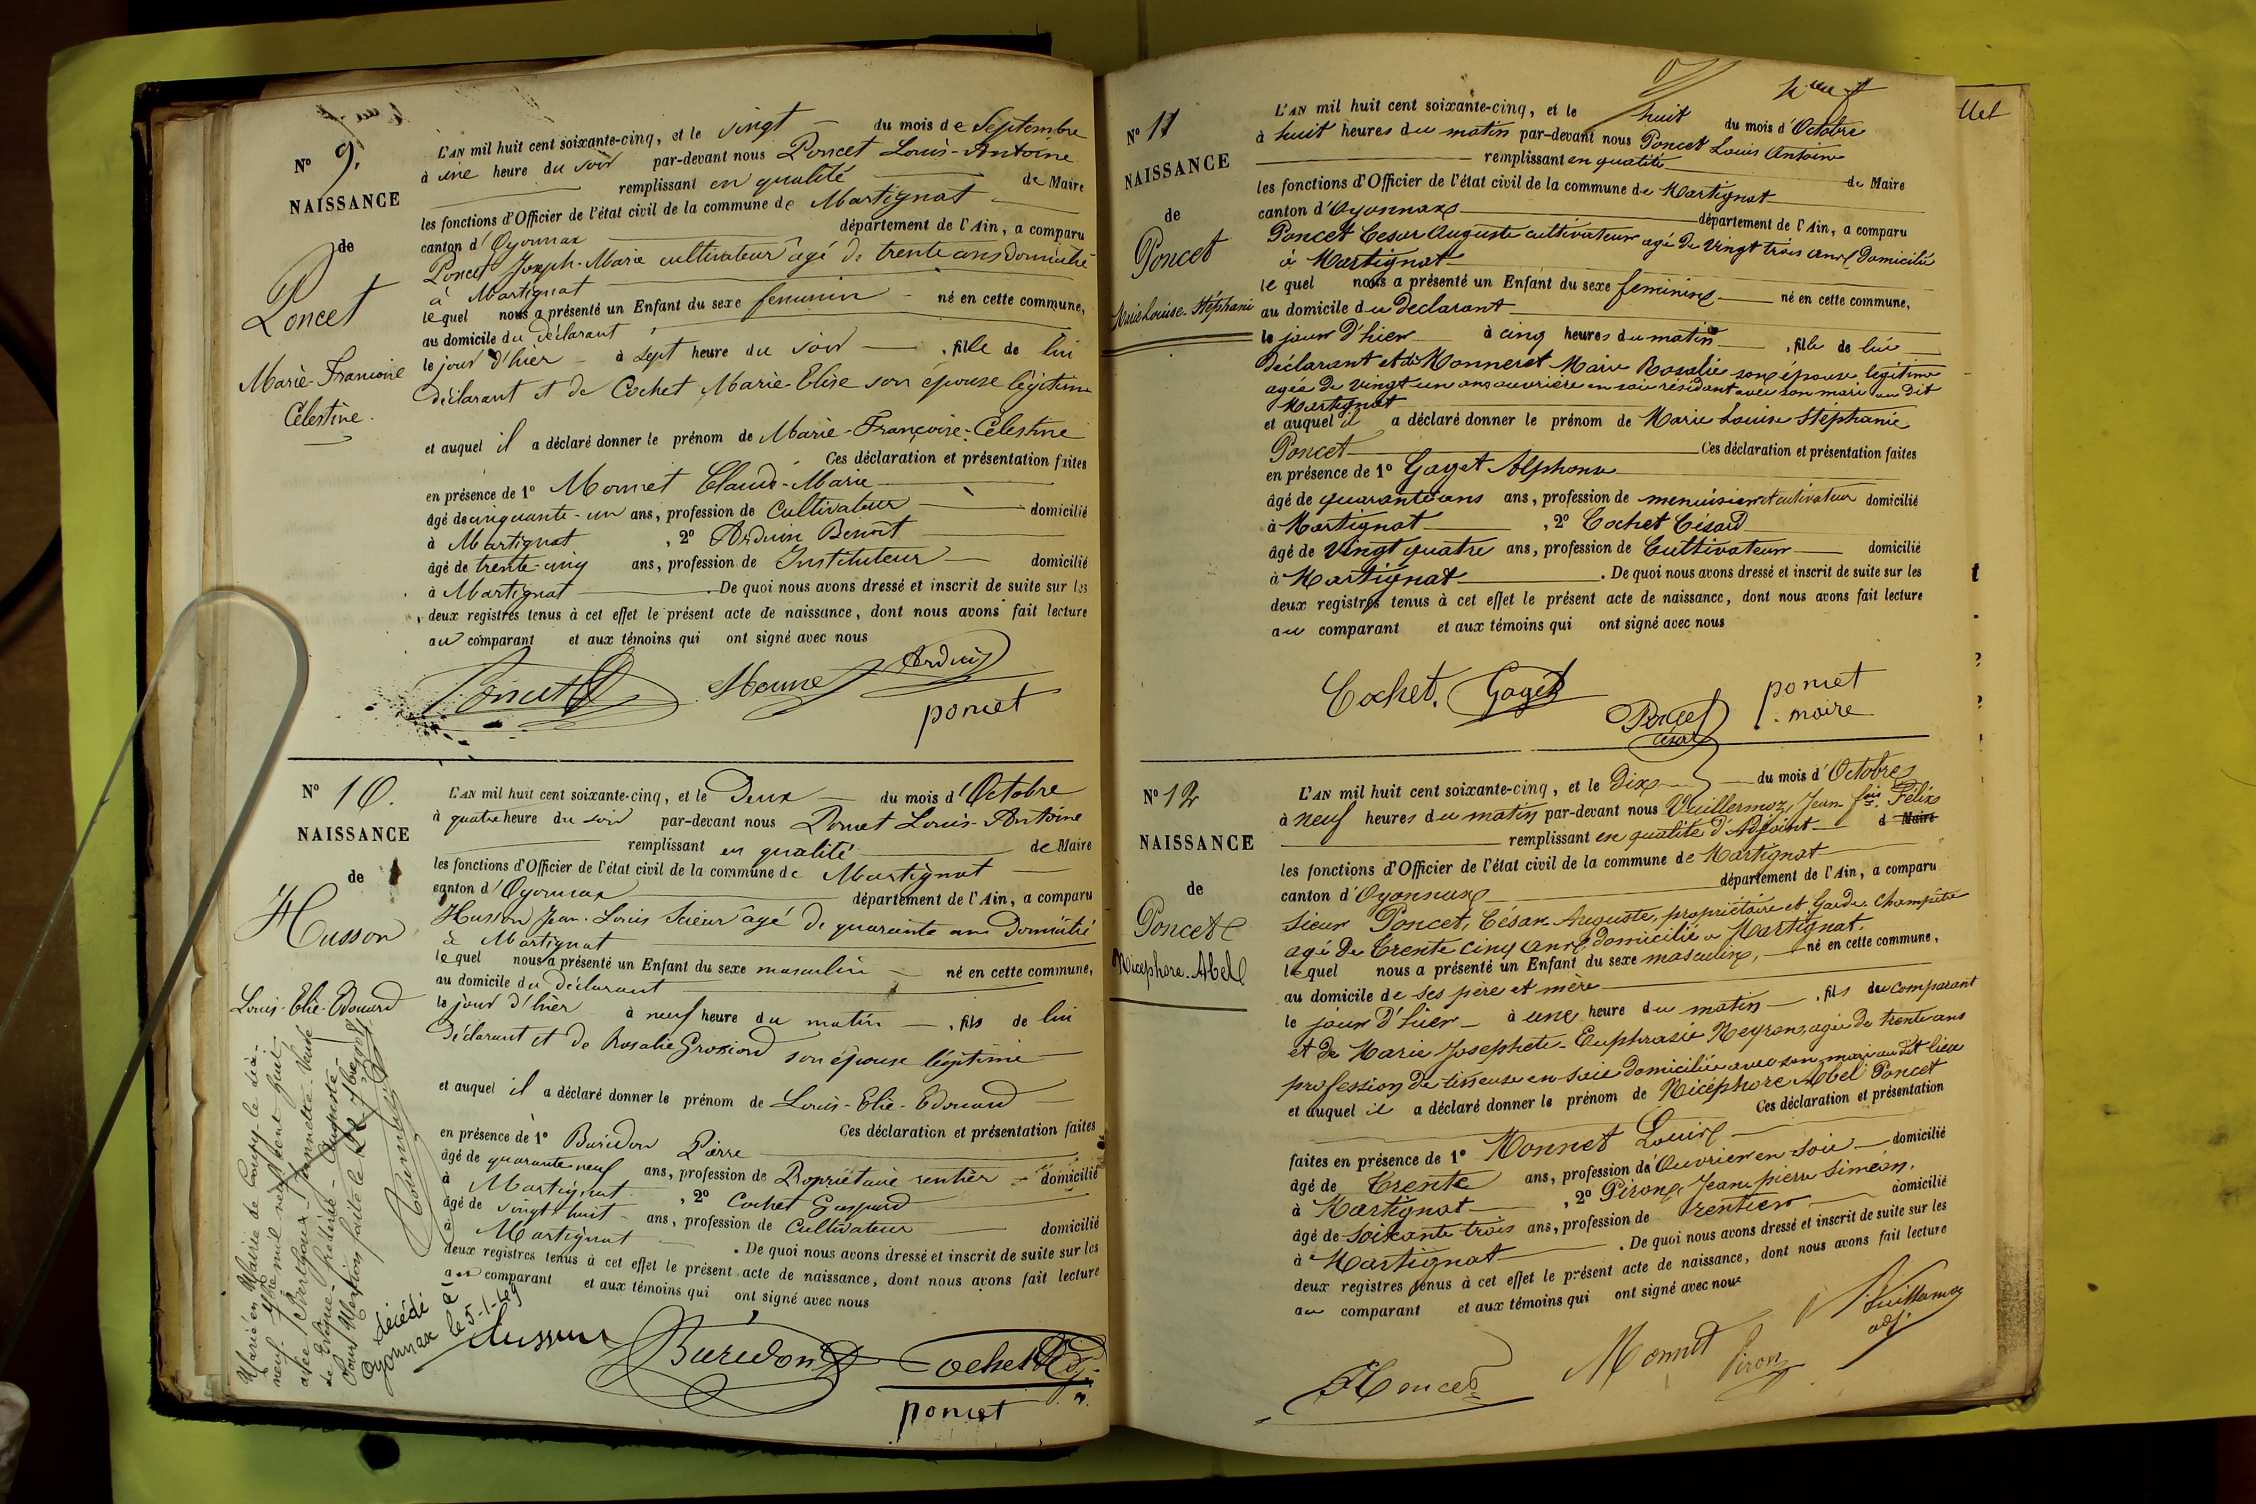 N° 9.
NAISSANCE
de
Poncet
Marie-Francoise
Célestine.
L'AN mil huit cent soixante-cinq, et le vingt du mois de Septembre
à une heure du soir par-devant nous Poncet Louis-Antoine
remplissant en qualité de Maire
les fonctions d'Officier de l'état civil de la commune de Martignat
canton d'Oyonnax département de l'Ain, a comparu
Poncet Joseph-Marie cultivateur âgé de trente ans domicilié
à Martignat
lequel nous a présenté un Enfant du sexe feminin né en cette commune,
au domicile du déclarant
le jour d'hier à sept heure du soir, fille de lui
déclarant et de Cochet Marie-Elise son épouse légitime
et auquel il a déclaré donner le prénom de Marie-Françoise-Célestine
Ces déclaration et présentation faites
en présence de 1° Monnet Claude-Marie
âgé de cinquante-un ans, profession de Cultivateur domicilié
à Martignat, 2° Arduin Benoit
âgé de trente-cinq ans, profession de Instituteur domicilié
à Martignat. De quoi nous avons dressé et inscrit de suite sur les
deux registres tenus à cet effet le présent acte de naissance, dont nous avons fait lecture
au comparant et aux témoins qui ont signé avec nous
Poncet Monnet Arduin
poncet
N° 10.
NAISSANCE
de
Husson
Louis-Elie-Edouard
L'AN mil huit cent soixante-cinq, et le Deux du mois d'Octobre
à quatre heure du soir par-devant nous Poncet Louis-Antoine
remplissant en qualité de Maire
les fonctions d'Officier de l'état civil de la commune de Martignat
canton d'Oyonnax département de l'Ain, a comparu
Husson Jean-Louis Scieur âgé de quarante ans Domicilié
à Martignat
lequel nous a présenté un Enfant du sexe masculin né en cette commune,
au domicile du déclarant
le jour d'hier à neuf heure du matin, fils de lui
déclarant et de Rosalie Grosiord son épouse légitime
et auquel il a déclaré donner le prénom de Louis-Elie-Edouard
Ces déclaration et présentation faites
en présence de 1° Buridon Pierre
âgé de quarante neuf ans, profession de Propriétaire rentier domicilié
à Martignat, 2° Cochet Gaspard
âgé de vingt-huit ans, profession de Cultivateur domicilié
à Martignat. De quoi nous avons dressé et inscrit de suite sur les
deux registres tenus à cet effet le présent acte de naissance, dont nous avons fait lecture
au comparant et aux témoins qui ont signé avec nous
Marié en Mairie de
neuf mil neuf cent huit
avec Jeannette
Pour Mention faite le
décédé à
Oyonnax le 5-1-49
Husson Buridon Cochet
poncet
N° 11
NAISSANCE
de
Poncet
Marie Louise-Stéphanie
neuf
L'AN mil huit cent soixante-cinq, et le huit du mois d'Octobre
à huit heures du matin par-devant nous Poncet Louis Antoine
remplissant en qualité de Maire
les fonctions d'Officier de l'état civil de la commune de Martignat
canton d'Oyonnax département de l'Ain, a comparu
Poncet Cesar Auguste cultivateur agé de vingt trois ans domicilié
à Martignat
lequel nous a présenté un Enfant du sexe feminine né en cette commune,
au domicile du Declarant
le jour d'hier à cinq heures du matin, fille de lui
déclarant et de Monneret Marie Rosalie son épouse legitime
agée de vingt un ans ouvrière en soie résidant avec son mari au dit
Martignat
et auquel il a déclaré donner le prénom de Marie Louise Stéphanie
Poncet Ces déclaration et présentation faites
en présence de 1° Goyet Alphonse
âgé de quarante ans ans, profession de menuisier et cultivateur domicilié
à Martignat, 2° Cochet César
âgé de vingt quatre ans, profession de Cultivateur domicilié
à Martignat. De quoi nous avons dressé et inscrit de suite sur les
deux registres tenus à cet effet le présent acte de naissance, dont nous avons fait lecture
au comparant et aux témoins qui ont signé avec nous
Cochet. Goyet Poncet César poncet maire
N° 12
NAISSANCE
de
Poncet
Nicephore-Abel
L'AN mil huit cent soixante-cinq, et le Dix du mois d'Octobre
à neuf heures du matin par-devant nous Vuillermoz, Jean fois Félix
remplissant en qualité d'Adjoint d Maire
les fonctions d'Officier de l'état civil de la commune de Martignat
canton d'Oyonnax département de l'Ain, a comparu
Sieur Poncet, César Auguste, propriétaire et Garde Champêtre
agé de trente cinq ans domicilié a Martignat.
lequel nous a présenté un Enfant du sexe masculin, né en cette commune,
au domicile de ses père et mère
le jour d'hier à une heure du matin, fils du comparant
et de Marie Josephete-Euphrasie Neyron, agée de trente ans
profession de tisseuse en soie domiciliée avec son mari au dit lieu
et auquel il a déclaré donner le prénom de Nicéphore Abel Poncet
Ces déclaration et présentation
faites en présence de 1° Monnet Louis
âgé de trente ans, profession de Ouvrier en soie domicilié
à Martignat, 2° Piron, Jean pierre Siméon.
âgé de soixante trois ans, profession de rentier domicilié
à Martignat. De quoi nous avons dressé et inscrit de suite sur les
deux registres tenus à cet effet le présent acte de naissance, dont nous avons fait lecture
au comparant et aux témoins qui ont signé avec nous
Poncet Monnet Piron Vuillermoz adj.